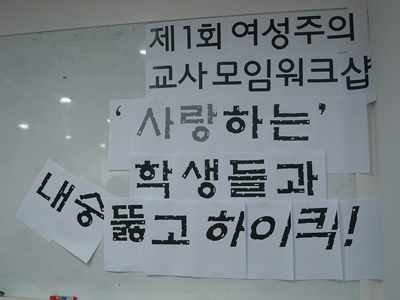 제1회 여성주의
교사 모임워크샵
‘사랑하는’
학생들과
내숭 뚫고 하이킥!